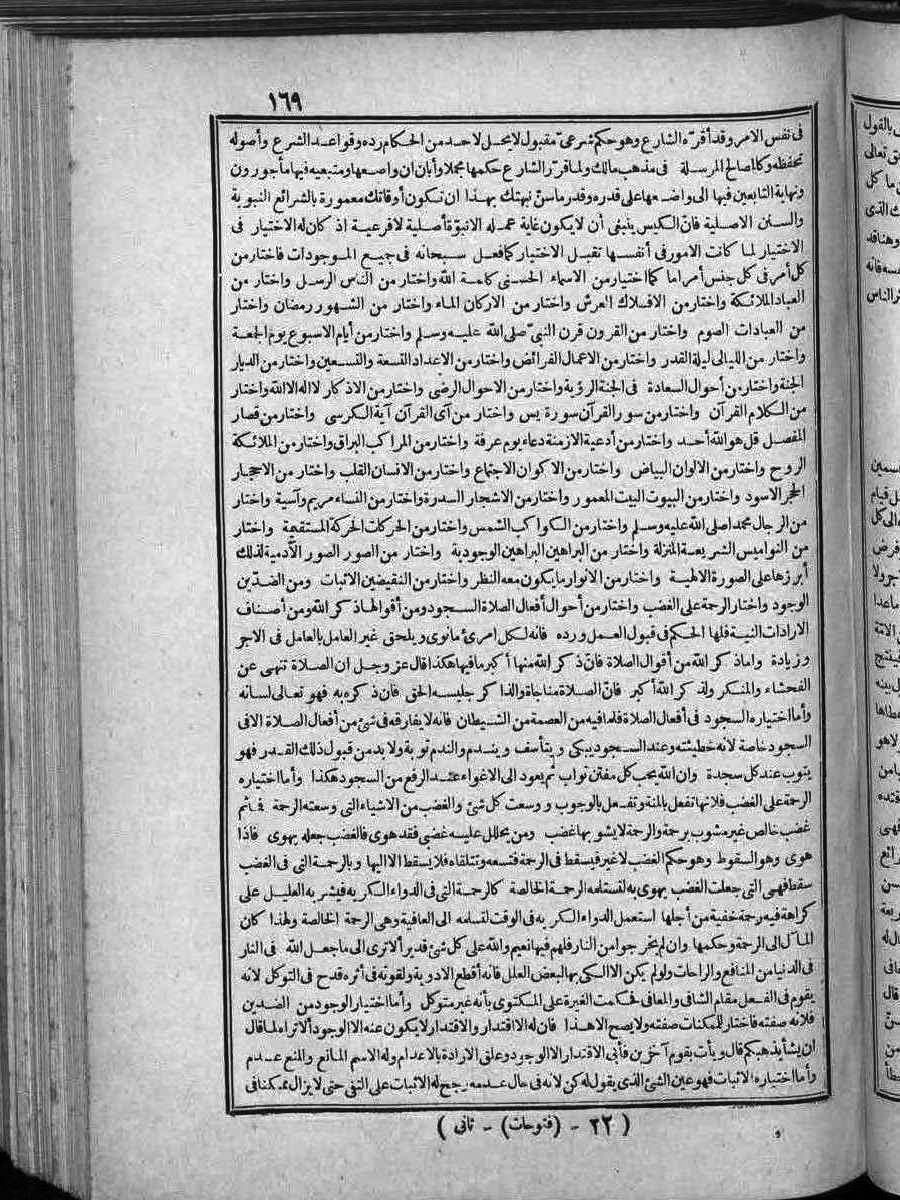 ١٦٩
في نفس الامر وقد أقرّه الشارع وهو حكم شرعيّ مقبول لا يحل لاحد من الحكام رده وقواعد الشرع وأصوله
تحفظه وكالمصالح المرسلة في مذهب مالك ولما قرّر الشارع حكمها مجملا وأبان ان واضعها ومتبعيه فيها مأجورون
ونهاية التابعين فيها الى واضعها على قدره وقدر ما سنّ نبهتك بهذا ان تكون أوقاتك معمورة بالشرائع النبوية
والسنن الاصلية فانّ الكيس ينبغي أن لا يكون غاية عمله الا نبوّة أصلية لا فرعية اذ كان له الاختيار في
الاختيار لما كانت الامور في أنفسها تقبل الاختيار كما فعل سبحانه في جميع الموجودات فاختار من
كل أمر في كل جنس أمرا ما كما اختار من الاسماء الحسنى كلمة الله واختار من الناس الرسل واختار من
العباد الملائكة واختار من الافلاك العرش واختار من الاركان الماء واختار من الشهور رمضان واختار
من العبادات الصوم واختار من القرون قرن النبيّ صلى الله عليه وسلم واختار من أيام الاسبوع يوم الجمعة
واختار من الليالى ليلة القدر واختار من الاعمال الفرائض واختار من الاعداد التسعة والتسعين واختار من الديار
الجنة واختار من أحوال السعادة في الجنة الرؤية واختار من الاحوال الرضى واختار من الاذكار لا اله الا الله واختار
من الكلام القرآن واختار من سور القرآن سورة يس واختار من آى القرآن آية الكرسي واختار من قصار
المفصل قل هو الله أحد واختار من أدعية الازمنة دعاء يوم عرفة واختار من المراكب البراق واختار من الملائكة
الروح واختار من الالوان البياض واختار من الاكوان الاجتماع واختار من الانسان القلب واختار من الاحجار
الحجر الاسود واختار من البيوت البيت المعمور واختار من الاشجار السدرة واختار من النساء مريم وآسية واختار
من الرجال محمدا صلى الله عليه وسلم واختار من الكواكب الشمس واختار من الحركات الحركة المستقيمة واختار
من النواميس الشريعة المنزلة واختار من البراهين البراهين الوجودية واختار من الصور الصور الآدمية لذلك
أبرزها على الصورة الالهية واختار من الانوار ما يكون معه النظر واختار من النقيضين الاثبات ومن الضدّين
الوجود واختار الرحمة على الغضب واختار من أحوال أفعال الصلاة السجود ومن أقوالها ذكر الله ومن أصناف
الارادات النية فلها الحكم في قبول العمل ورده فانه لكل امرئ ما نوى ويلحق غير العامل بالعامل في الاجر
وزيادة واما ذكر الله من أقوال الصلاة فانّ ذكر الله منها أكبر ما فيها هكذا قال عز وجل ان الصلاة تنهى عن
الفحشاء والمنكر ولذكر الله أكبر فانّ الصلاة مناجاة والذاكر جليسه الحق فان ذكره به فهو تعالى لسانه
وأما اختياره السجود في أفعال الصلاة فلما فيه من العصمة من الشيطان فانه لا يفارقه في شئ من أفعال الصلاة الا في
السجود خاصة لانه خطيئته وعند السجود يبكى ويتأسف ويندم والندم توبة ولا بد من قبول ذلك القدر فهو
يتوب عند كل سجدة وان الله يحب كل مفتن تواب ثم يعود الى الاغواء عند الرفع من السجود هكذا وأما اختياره
الرحمة على الغضب فلانها تفعل بالمنة وتفعل بالوجوب ووسعت كل شئ والغضب من الاشياء التي وسعته الرحمة فما ثم
غضب خالص غير مشوب برحمة والرحمة لا يشوبها غضب ومن يحلل عليه غضبى فقد هوى فالغضب جعله يهوى فاذا
هوى وهو السقوط وهو حكم الغضب لا غير فيسقط في الرحمة فتسعه وتتلقاه فلا يسقط الا اليها وبالرحمة التى في الغضب
سقط فهى التي جعلت الغضب يهوى به لتستلمه الرحمة الخالصة كالرحمة التى في الدواء الكريه فيشربه العليل على
كراهة فيه رحمة خفية من أجلها استعمل الدواء الكريه في الوقت لتسلمه الى العافية وهى الرحمة الخالصة ولهذا كان
المآل الى الرحمة وحكمها وان لم يخرجوا من النار فلهم فيها نعيم والله على كل شئ قدير ألا ترى الى ما جعل الله في النار
في الدنيا من المنافع والراحات ولو لم يكن الا الكى بها لبعض العلل فانه أقطع الادوية ولقوته في أثره قدح في التوكل لانه
يقوم في الفعل مقام الشافى والمعافى فحكمت الغيرة على المكتوى بأنه غير متوكل وأما اختيار الوجود من الضدين
فلانه صفته فاختار للممكنات صفته ولا يصح الا هذا فان له الاقتدار والاقتدار لا يكون عنه الا الوجود ألا تراه لما قال
ان يشأ يذهبكم قال ويأت بقوم آخرين فأبى الاقتدار الا الوجود وعلق الارادة بالاعدام وله الاسم المانع والمنع عدم
وأما اختياره الاثبات فهو عين الشئ الذى يقول له كن لانه في حال عدمه رجح له الاثبات على النفى حتى لا يزال ممكنا في
( ٢٢ - (فتوحات) - ثانى )